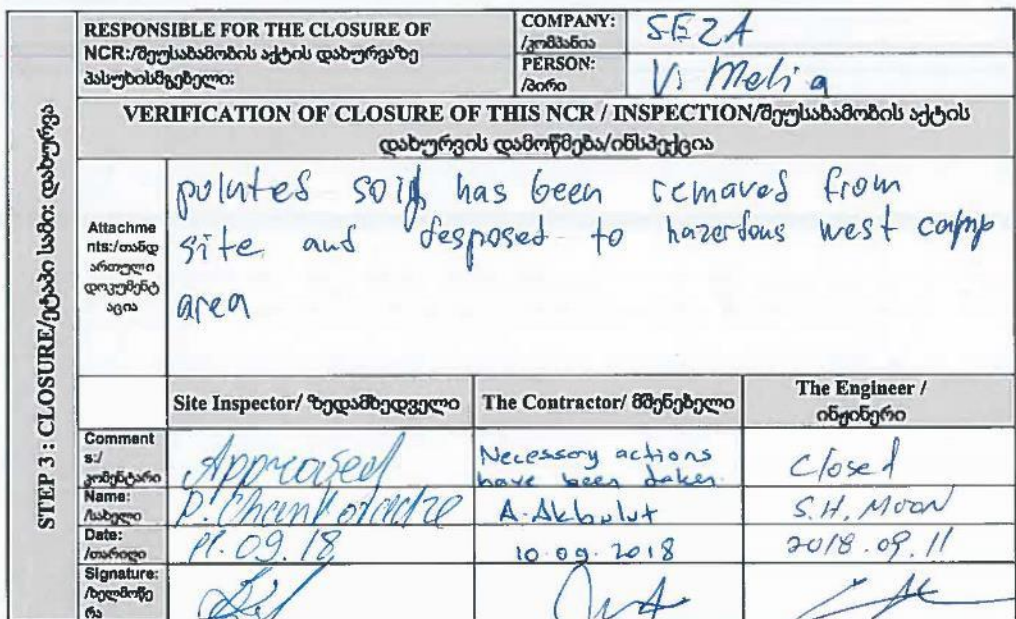 STEP 3 : CLOSURE/ეტაპი სამი: დახურვა
RESPONSIBLE FOR THE CLOSURE OF
NCR:/შეუსაბამობის აქტის დახურვაზე
პასუხისმგებელი:
COMPANY:
/კომპანია
SEZA
PERSON:
/პირი
V. Melia
VERIFICATION OF CLOSURE OF THIS NCR / INSPECTION/შეუსაბამობის აქტის
დახურვის დამოწმება/ინსპექცია
Attachme
nts:/თანდ
ართული
დოკუმენტ
აცია
poluted soil has been removed from
site and desposed to hazerdous west camp
area
Site Inspector/ ზედამხედველი
The Contractor/ მშენებელი
The Engineer /
ინჟინერი
Comment
s:/
კომენტარი
Approved
Necessory actions
have been taken
Closed
Name:
/სახელი
A. Akbulut
S.H. MOON
Date:
/თარიღი
11.09.18
10.09.2018
2018.09.11
Signature:
/ხელმოწე
რა